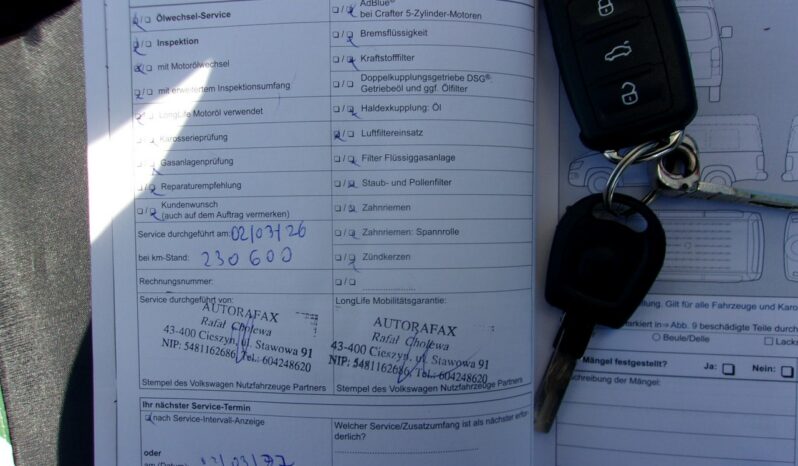 AdBlue®
bei Crafter 5-Zylinder-Motoren
Ölwechsel-Service
Bremsflüssigkeit
Inspektion
Kraftstofffilter
mit Motorölwechsel
Doppelkupplungsgetriebe DSG®:
Getriebeöl und ggf. Ölfilter
mit erweitertem Inspektionsumfang
Haldexkupplung: Öl
LongLife Motoröl verwendet
Luftfiltereinsatz
Karosserieprüfung
Filter Flüssiggasanlage
Gasanlagenprüfung
Staub- und Pollenfilter
Reparaturempfehlung
Kundenwunsch
(auch auf dem Auftrag vermerken)
Zahnriemen
Service durchgeführt am: 02/03/26
Zahnriemen: Spannrolle
bei km-Stand: 230 600
Zündkerzen
Rechnungsnummer:
Service durchgeführt von:
AUTORAFAX
Rafał Cholewa
43-400 Cieszyn, ul. Stawowa 91
NIP: 5481162686, Tel.: 604248620
Stempel des Volkswagen Nutzfahrzeuge Partners
LongLife Mobilitätsgarantie:
AUTORAFAX
Rafał Cholewa
43-400 Cieszyn, ul. Stawowa 91
NIP: 5481162686, Tel.: 604248620
Stempel des Volkswagen Nutzfahrzeuge Partners
Ihr nächster Service-Termin
nach Service-Intervall-Anzeige
oder
am (Datum)
Welcher Service/Zusatzumfang ist als nächster erfor-
derlich?
Gilt für alle Fahrzeuge und Karo
markiert in ⇒ Abb. 9 beschädigte Teile durch
Beule/Delle
Lack
Mängel festgestellt? Ja: Nein:
schreibung der Mängel: